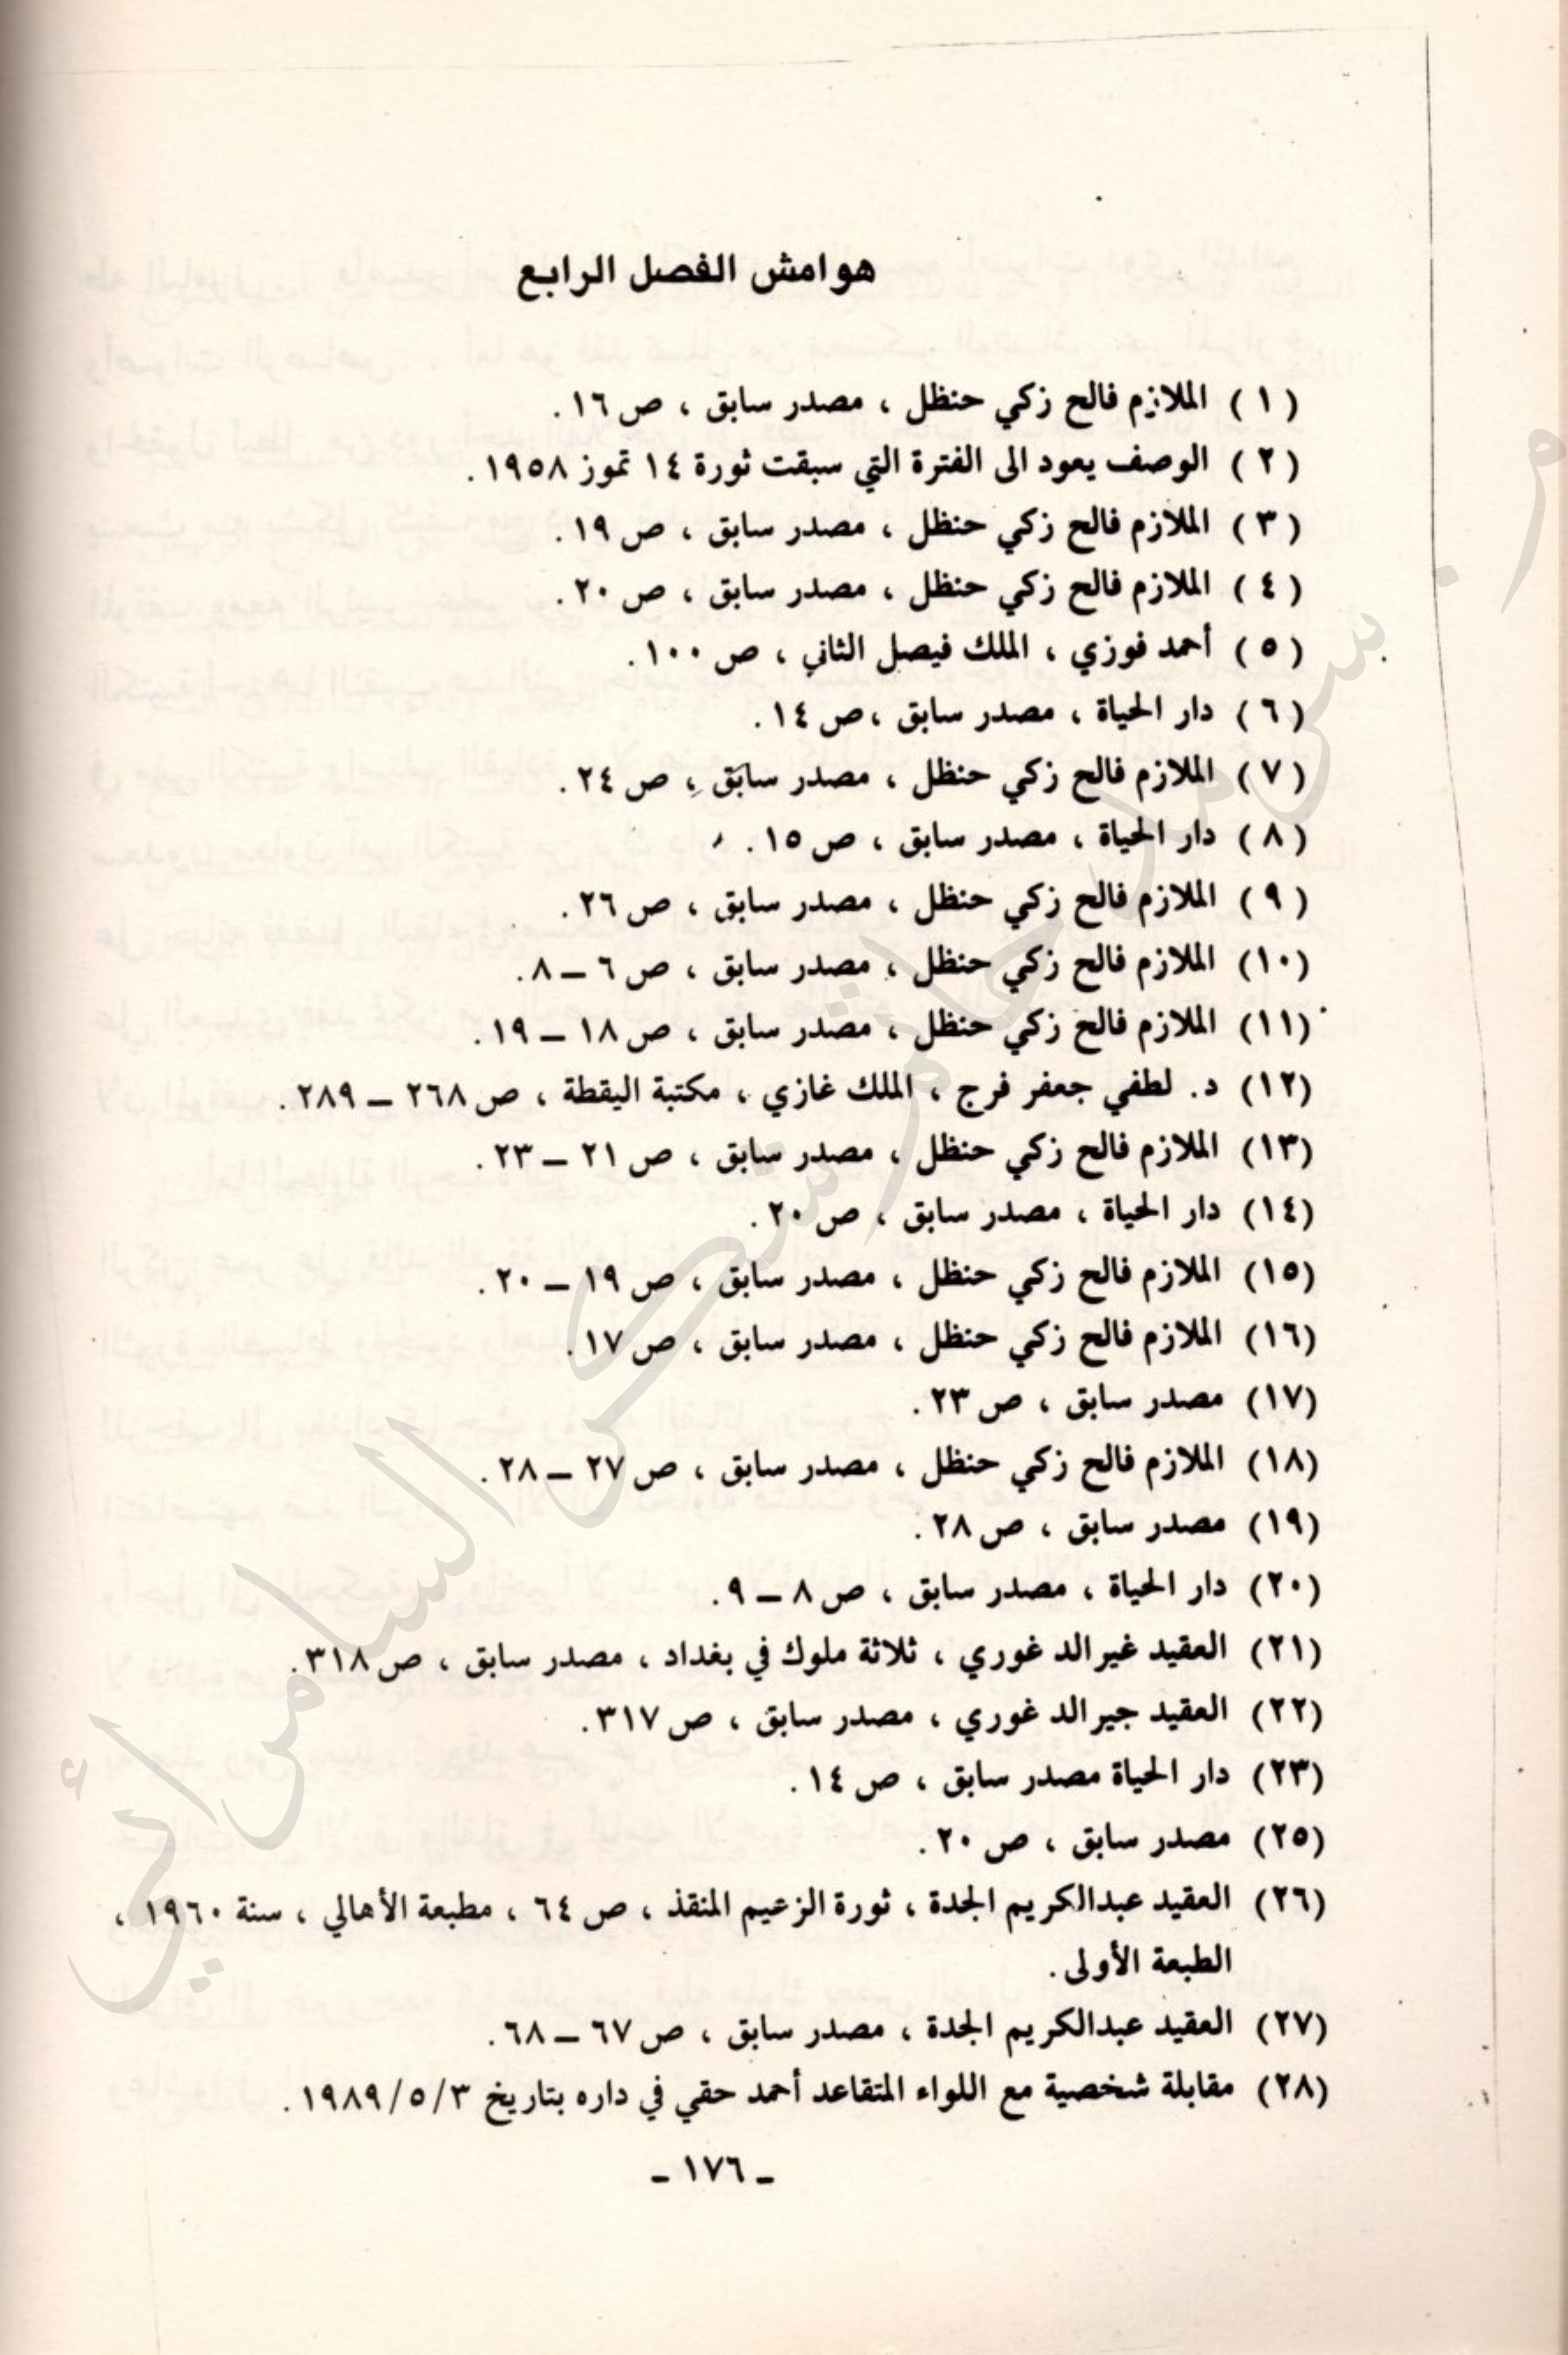 هوامش الفصل الرابع
( ١ ) الملازم فالح زكي حنظل ، مصدر سابق ، ص ١٦ .
( ٢ ) الوصف يعود الى الفترة التي سبقت ثورة ١٤ تموز ١٩٥٨ .
( ٣ ) الملازم فالح زكي حنظل ، مصدر سابق ، ص ١٩ .
( ٤ ) الملازم فالح زكي حنظل ، مصدر سابق ، ص ٢٠ .
( ٥ ) أحمد فوزي ، الملك فيصل الثاني ، ص ١٠٠ .
( ٦ ) دار الحياة ، مصدر سابق ، ص ١٤ .
( ٧ ) الملازم فالح زكي حنظل ، مصدر سابق ، ص ٢٤ .
( ٨ ) دار الحياة ، مصدر سابق ، ص ١٥ .
( ٩ ) الملازم فالح زكي حنظل ، مصدر سابق ، ص ٢٦ .
(١٠) الملازم فالح زكي حنظل ، مصدر سابق ، ص ٦ – ٨ .
(١١) الملازم فالح زكي حنظل ، مصدر سابق ، ص ١٨ – ١٩ .
(١٢) د. لطفي جعفر فرج ، الملك غازي ، مكتبة اليقطة ، ص ٢٦٨ – ٢٨٩ .
(١٣) الملازم فالح زكي حنظل ، مصدر سابق ، ص ٢١ – ٢٣ .
(١٤) دار الحياة ، مصدر سابق ، ص ٢٠ .
(١٥) الملازم فالح زكي حنظل ، مصدر سابق ، ص ١٩ – ٢٠ .
(١٦) الملازم فالح زكي حنظل ، مصدر سابق ، ص ١٧ .
(١٧) مصدر سابق ، ص ٢٣ .
(١٨) الملازم فالح زكي حنظل ، مصدر سابق ، ص ٢٧ – ٢٨ .
(١٩) مصدر سابق ، ص ٢٨ .
(٢٠) دار الحياة ، مصدر سابق ، ص ٨ – ٩ .
(٢١) العقيد غيرالد غوري ، ثلاثة ملوك في بغداد ، مصدر سابق ، ص ٣١٨ .
(٢٢) العقيد جيرالد غوري ، مصدر سابق ، ص ٣١٧ .
(٢٣) دار الحياة مصدر سابق ، ص ١٤ .
(٢٥) مصدر سابق ، ص ٢٠ .
(٢٦) العقيد عبدالكريم الجدة ، ثورة الزعيم المنقذ ، ص ٦٤ ، مطبعة الأهالي ، سنة ١٩٦٠ ،
الطبعة الأولى .
(٢٧) العقيد عبدالكريم الجدة ، مصدر سابق ، ص ٦٧ – ٦٨ .
(٢٨) مقابلة شخصية مع اللواء المتقاعد أحمد حقي في داره بتاريخ ١٩٨٩/٥/٣ .
- ١٧٦ -
السامرائي